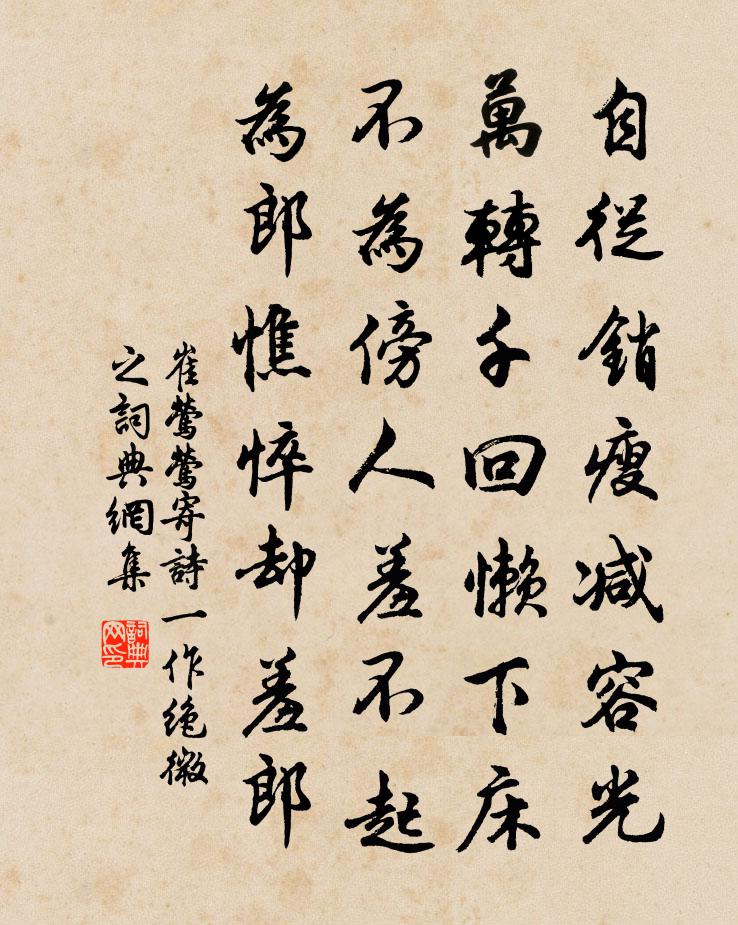 自從銷瘦減容光
萬轉千回懶下床
不為傍人羞不起
為郎憔悴却羞郎
崔鶯鶯寄詩一作絕微
之詞典網集
詞典
网印